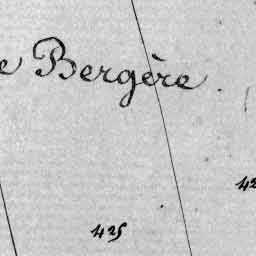 e Bergère
42
425